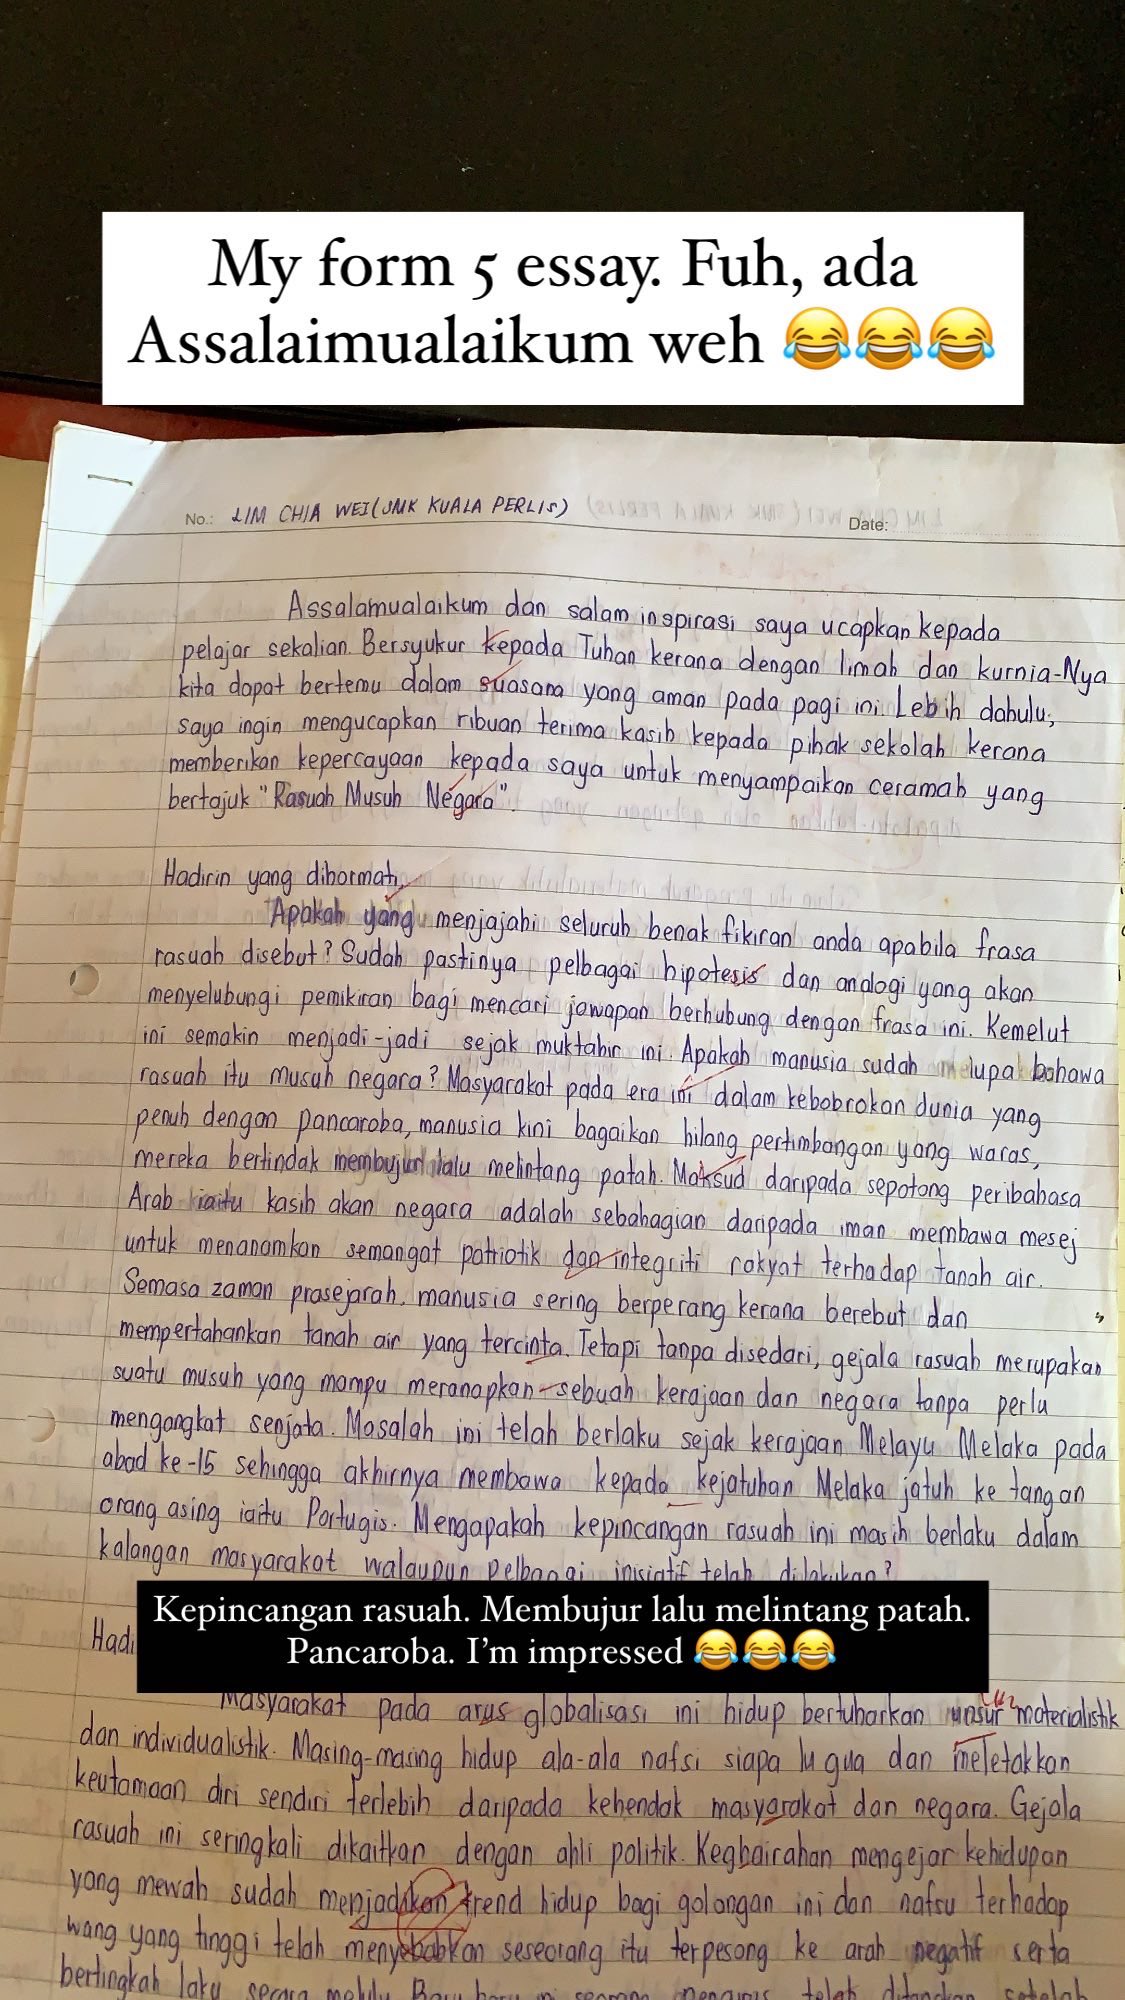 My form 5 essay. Fuh, ada
Assalaimualaikum weh 😂😂😂
No.: LIM CHIA WEI (SMK KUALA PERLIS)
Date:
Assalamualaikum dan salam inspirasi saya ucapkan kepada
pelajar sekalian. Bersyukur kepada Tuhan kerana dengan limah dan kurnia-Nya
kita dapat bertemu dalam suasana yang aman pada pagi ini. Lebih dahulu,
saya ingin mengucapkan ribuan terima kasih kepada pihak sekolah kerana
memberikan kepercayaan kepada saya untuk menyampaikan ceramah yang
bertajuk "Rasuah Musuh Negara".
Hadirin yang dihormati,
Apakah yang menjajahi seluruh benak fikiran anda apabila frasa
rasuah disebut? Sudah pastinya pelbagai hipotesis dan analogi yang akan
menyelubungi pemikiran bagi mencari jawapan berhubung dengan frasa ini. Kemelut
ini semakin menjadi-jadi sejak muktahir ini. Apakah manusia sudah lupa bahawa
rasuah itu musuh negara? Masyarakat pada era ini dalam kebobrokan dunia yang
penuh dengan pancaroba, manusia kini bagaikan hilang pertimbangan yang waras,
mereka bertindak membujur lalu melintang patah. Maksud daripada sepotong peribahasa
Arab iaitu kasih akan negara adalah sebahagian daripada iman membawa mesej
untuk menanamkan semangat patriotik dan integriti rakyat terhadap tanah air.
Semasa zaman prasejarah, manusia sering berperang kerana berebut dan
mempertahankan tanah air yang tercinta. Tetapi tanpa disedari, gejala rasuah merupakan
suatu musuh yang mampu meranapkan sebuah kerajaan dan negara tanpa perlu
mengangkat senjata. Masalah ini telah berlaku sejak kerajaan Melayu Melaka pada
abad ke-15 sehingga akhirnya membawa kepada kejatuhan Melaka jatuh ke tangan
orang asing iaitu Portugis. Mengapakah kepincangan rasuah ini masih berlaku dalam
kalangan masyarakat walaupun pelbagai inisiatif telah dilakukan?
Kepincangan rasuah. Membujur lalu melintang patah.
Pancaroba. I'm impressed 😂😂😂
Hadi
Masyarakat pada arus globalisasi ini hidup bertuharkan unsur materialistik
dan individualistik. Masing-masing hidup ala-ala nafsi siapa lu gua dan meletakkan
keutamaan diri sendiri terlebih daripada kehendak masyarakat dan negara. Gejala
rasuah ini seringkali dikaitkan dengan ahli politik. Keghairahan mengejar kehidupan
yang mewah sudah menjadikan trend hidup bagi golongan ini dan nafsu terhadap
wang yang tinggi telah menyebabkan seseorang itu terpesong ke arah negatif serta
bertingkah laku secara melulu. Baru-baru ini seorang telah